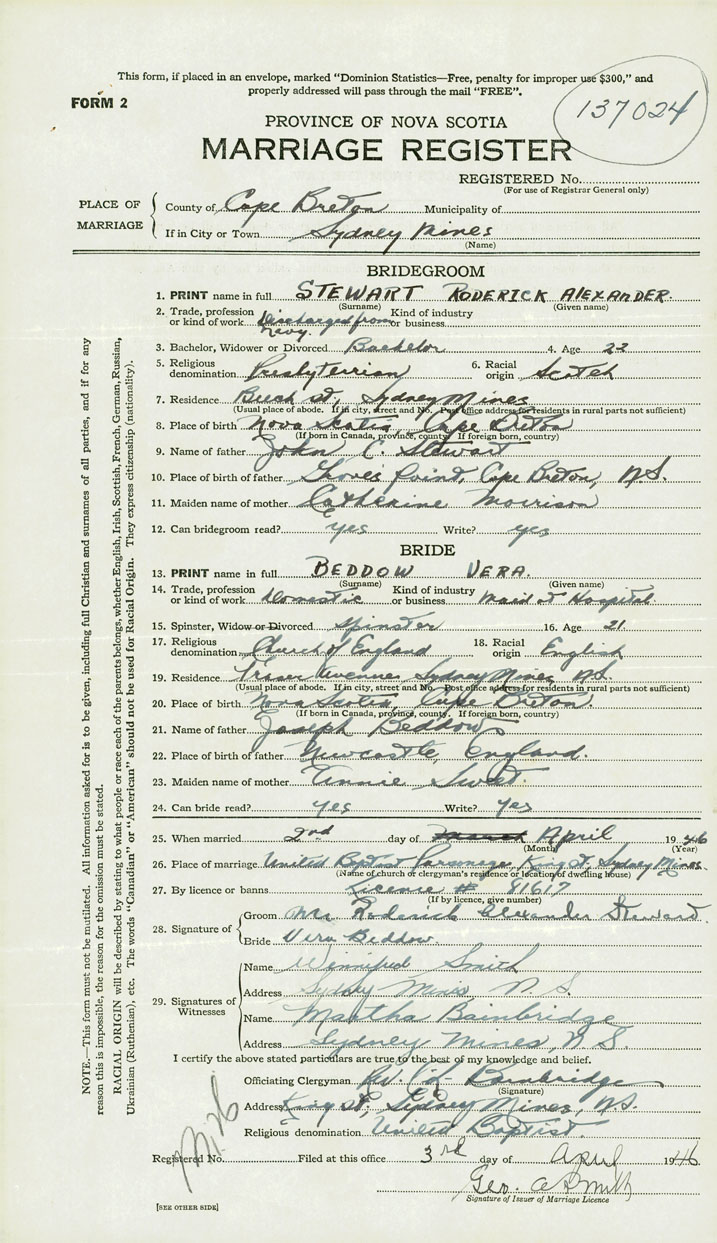 This form, if placed in an envelope, marked "Dominion Statistics—Free, penalty for improper use $300," and
properly addressed will pass through the mail "FREE".
FORM 2
137024
PROVINCE OF NOVA SCOTIA
MARRIAGE REGISTER
REGISTERED No.
(For use of Registrar General only)
PLACE OF MARRIAGE
County of Cape Breton Municipality of
If in City or Town Sydney Mines
(Name)
BRIDEGROOM
1. PRINT name in full STEWART RODERICK ALEXANDER.
(Surname) (Given name)
2. Trade, profession or kind of work Discharged from Navy. Kind of industry or business
3. Bachelor, Widower or Divorced Bachelor 4. Age 22
5. Religious denomination Presbyterrian 6. Racial origin Scotch
7. Residence St, Sydney Mines
(Usual place of abode. If in city, street and No. Post office address for residents in rural parts not sufficient)
8. Place of birth Nova Scotia, Cape Breton
(If born in Canada, province, county. If foreign born, country)
9. Name of father John C. Stewart
10. Place of birth of father Point, Cape Breton, N.S.
11. Maiden name of mother Catherine Morrison
12. Can bridegroom read? yes Write? yes
BRIDE
13. PRINT name in full BEDDOW VERA.
(Surname) (Given name)
14. Trade, profession or kind of work Domestic Kind of industry or business Maid at Hospital
15. Spinster, Widow or Divorced Spinster 16. Age 21
17. Religious denomination Church of England 18. Racial origin English
19. Residence Fraser Avenue, Sydney Mines N.S.
(Usual place of abode. If in city, street and No. Post office address for residents in rural parts not sufficient)
20. Place of birth Nova Scotia, Cape Breton.
(If born in Canada, province, county. If foreign born, country)
21. Name of father Joseph Beddow
22. Place of birth of father Newcastle, England.
23. Maiden name of mother Annie Sweet.
24. Can bride read? yes Write? yes
25. When married 2nd day of April 1946
(Month) (Year)
26. Place of marriage United Baptist Parsonage, King St, Sydney Mines.
(Name of church or clergyman's residence or location of dwelling house)
27. By licence or banns License # 81617
(If by licence, give number)
28. Signature of
Groom Mr. Roderick Alexander Steward.
Bride Vera Beddow.
29. Signatures of Witnesses
Name Winnifred Smith
Address Sydney Mines N.S.
Name Martha Bainbridge
Address Sydney Mines, N S
I certify the above stated particulars are true to the best of my knowledge and belief.
Officiating Clergyman Rev. Bainbridge
(Signature)
Address King St, Sydney Mines, N.S.
Religious denomination United Baptist.
Registered No. Filed at this office 3rd day of April 1946
Geo. A Smith
Signature of Issuer of Marriage Licence
[SEE OTHER SIDE]
NOTE.—This form must not be mutilated. All information asked for is to be given, including full Christian and surnames of all parties, and if for any
reason this is impossible, the reason for the omission must be stated.
RACIAL ORIGIN will be described by stating to what people or race each of the parents belongs, whether English, Irish, Scottish, French, German, Russian,
Ukrainian (Ruthenian), etc. The words "Canadian" or "American" should not be used for Racial Origin. They express citizenship (nationality).